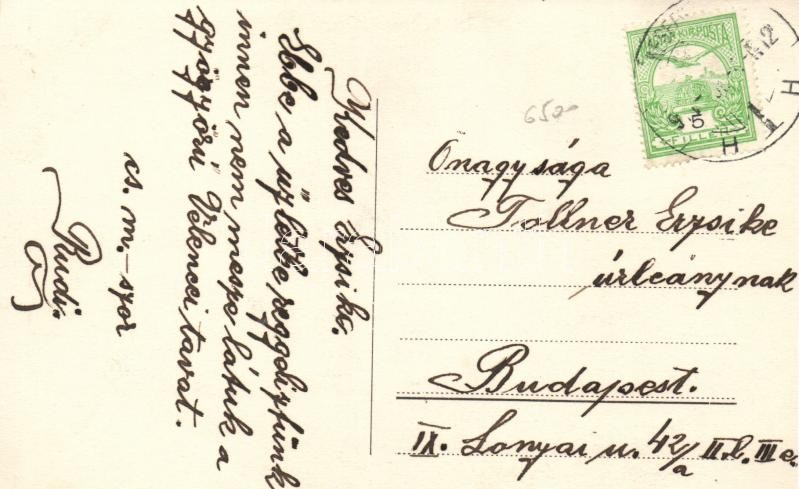 Kedves Erzsike.
Ebbe a üzletbe reggeliztünk
innen nem messze látuk a
gyönyörű Velencei tavat.
cs. m.-szor
Rudi.
6500
MAGYAR KIR. POSTA
5
FILLÉR
Őnagysága
Tollner Erzsike
úrleánynak
Budapest.
IX. Lonyai u. 42/a II.l. III e.